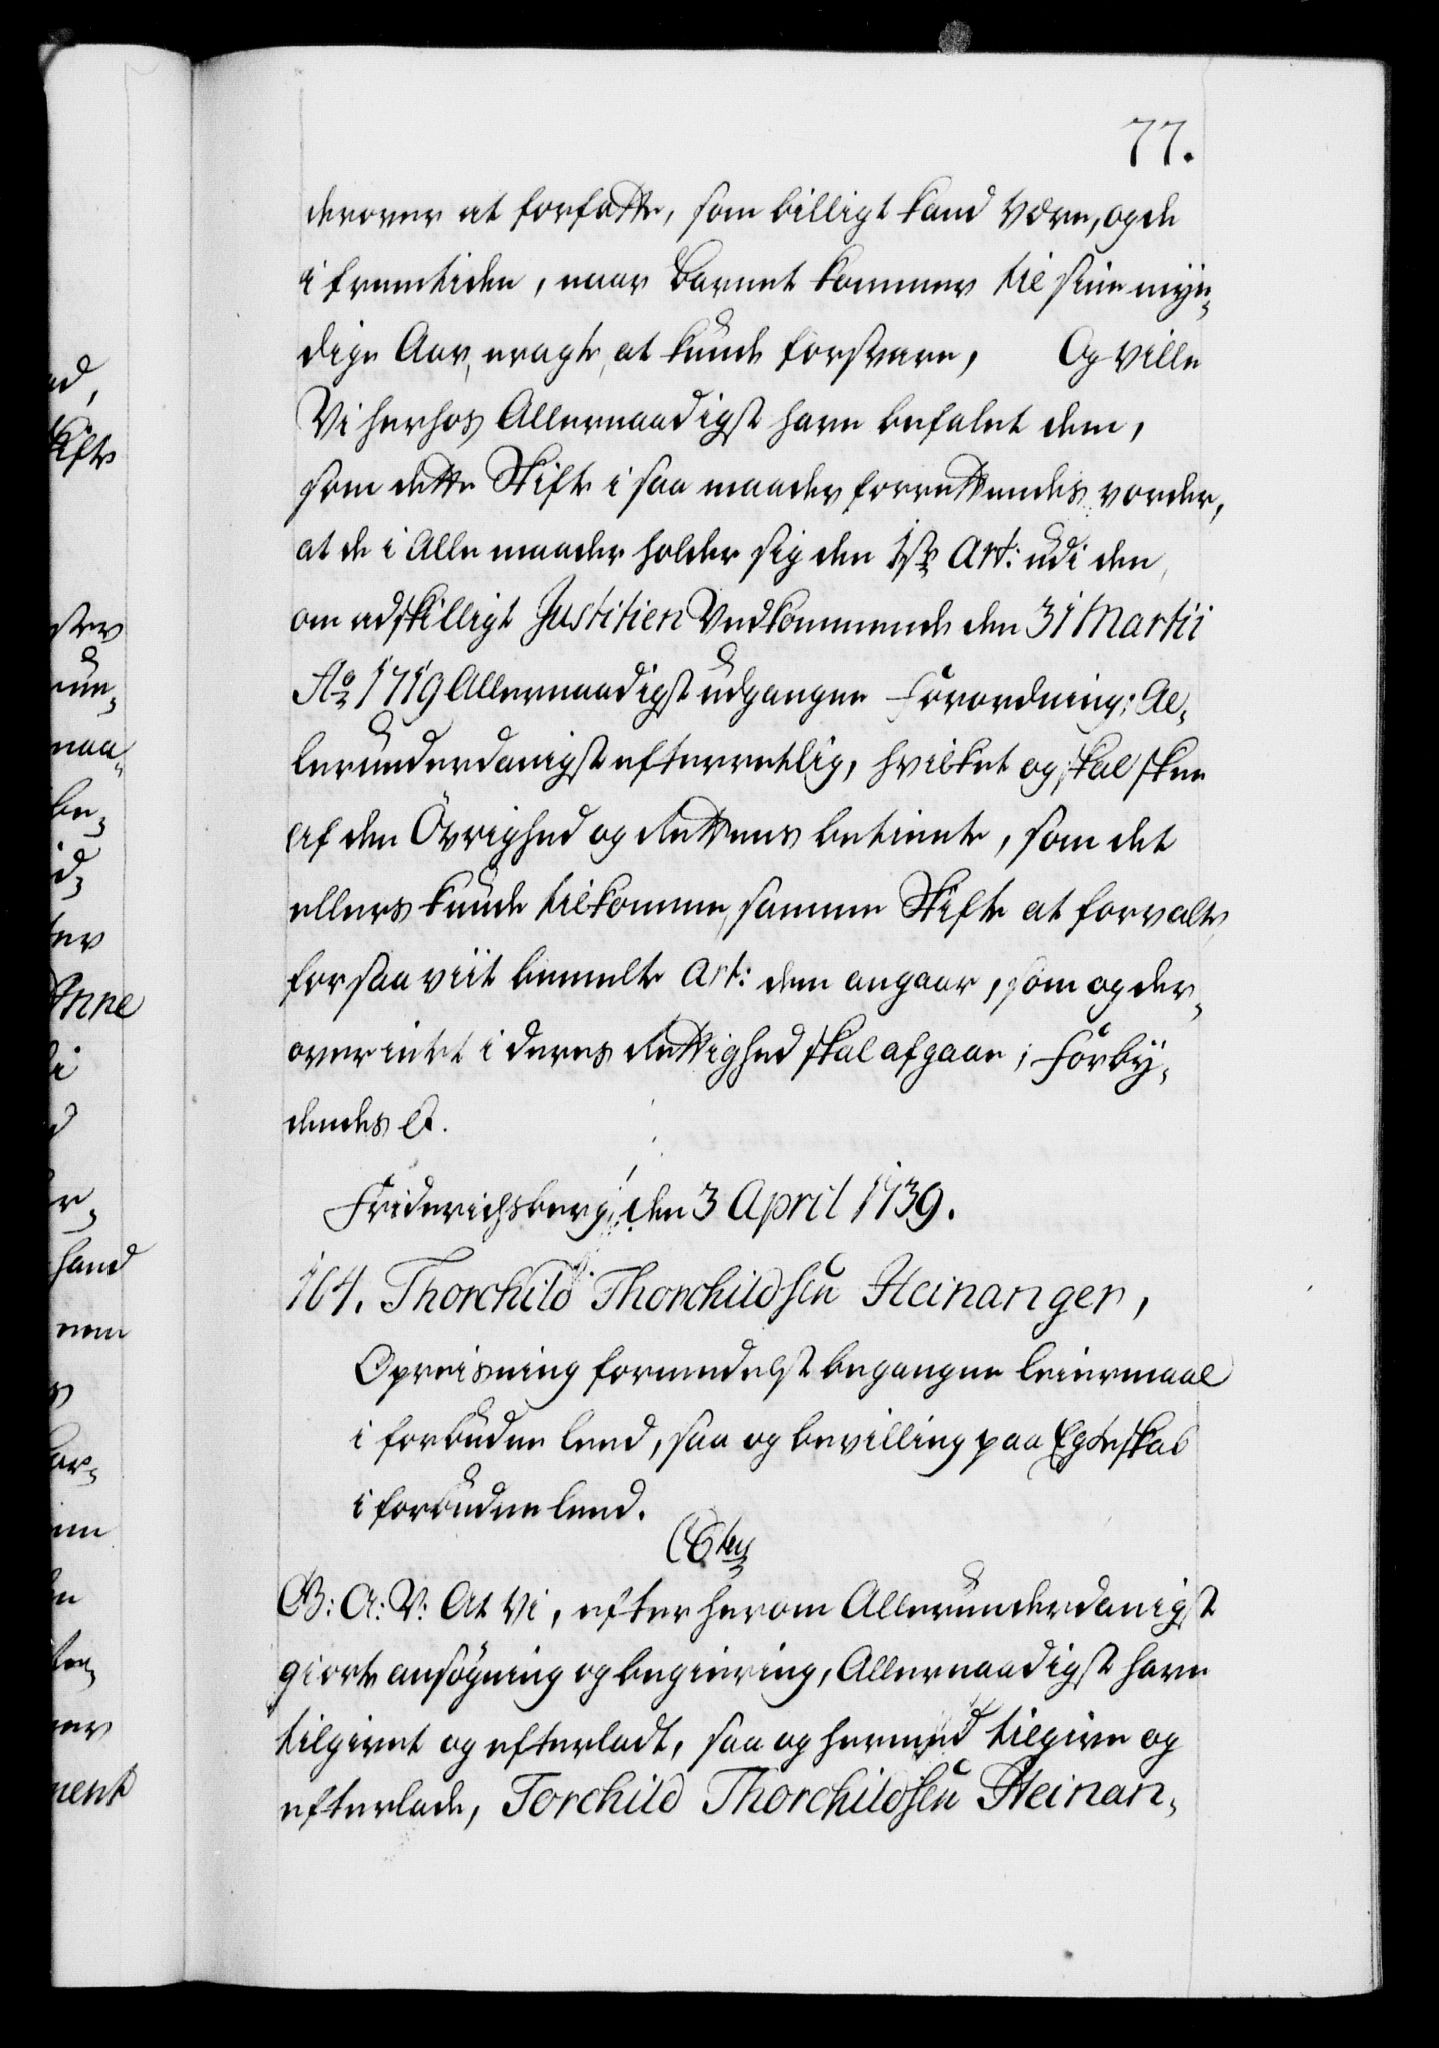 77.
derover at forfatte, som billigt kand være, og de
i fremtiden, naar Barnet kommer til sine myn-
dige Aar, eragte at kunde forsvare, Og ville
Vi herhos Allernaadigst have befalet dem,
som dette Skifte i saa maader forrettendes vorder,
at de i Alle maader holder sig den 1ste Art: udi den,
om adskilligt Justitien Vedkommende den 31 Martii
Ao 1719 Allernaadigst udgangne Forordning; Al-
lerunderdanigst efterretlig, hvilket og skal skee
af den Övrighed og Rettens betiente, som det
ellers kunde tilkomme, samme Skifte at forvalte,
forsaaviit bemelte Art: dem angaar, som og der-
over intet i deres Rettighed skal afgaae; Forby-
dendes &.
Friderichsberg, den 3 April 1739.
164. Thorchild Thorchildsen Heinanger,
Opreisning formedelst begangne leiermaal
i forbuden leed, saa og bevilling paa Egteskab
i forbuden leed.
C6tus
G: A: V: At Vi, efter herom Allerunderdanigst
giorte ansögning og begiering, Allernaadigst have
tilgivet og efterladt, saa og hermed tilgive og
efterlade, Torchild Thorchildsen Heinan-
ad,
Skifte
ster
run-
maa-
be-
d-
ter
Anne
li
d
r-
hand
nem
s
bor-
nm
en
fen-
ner
ment